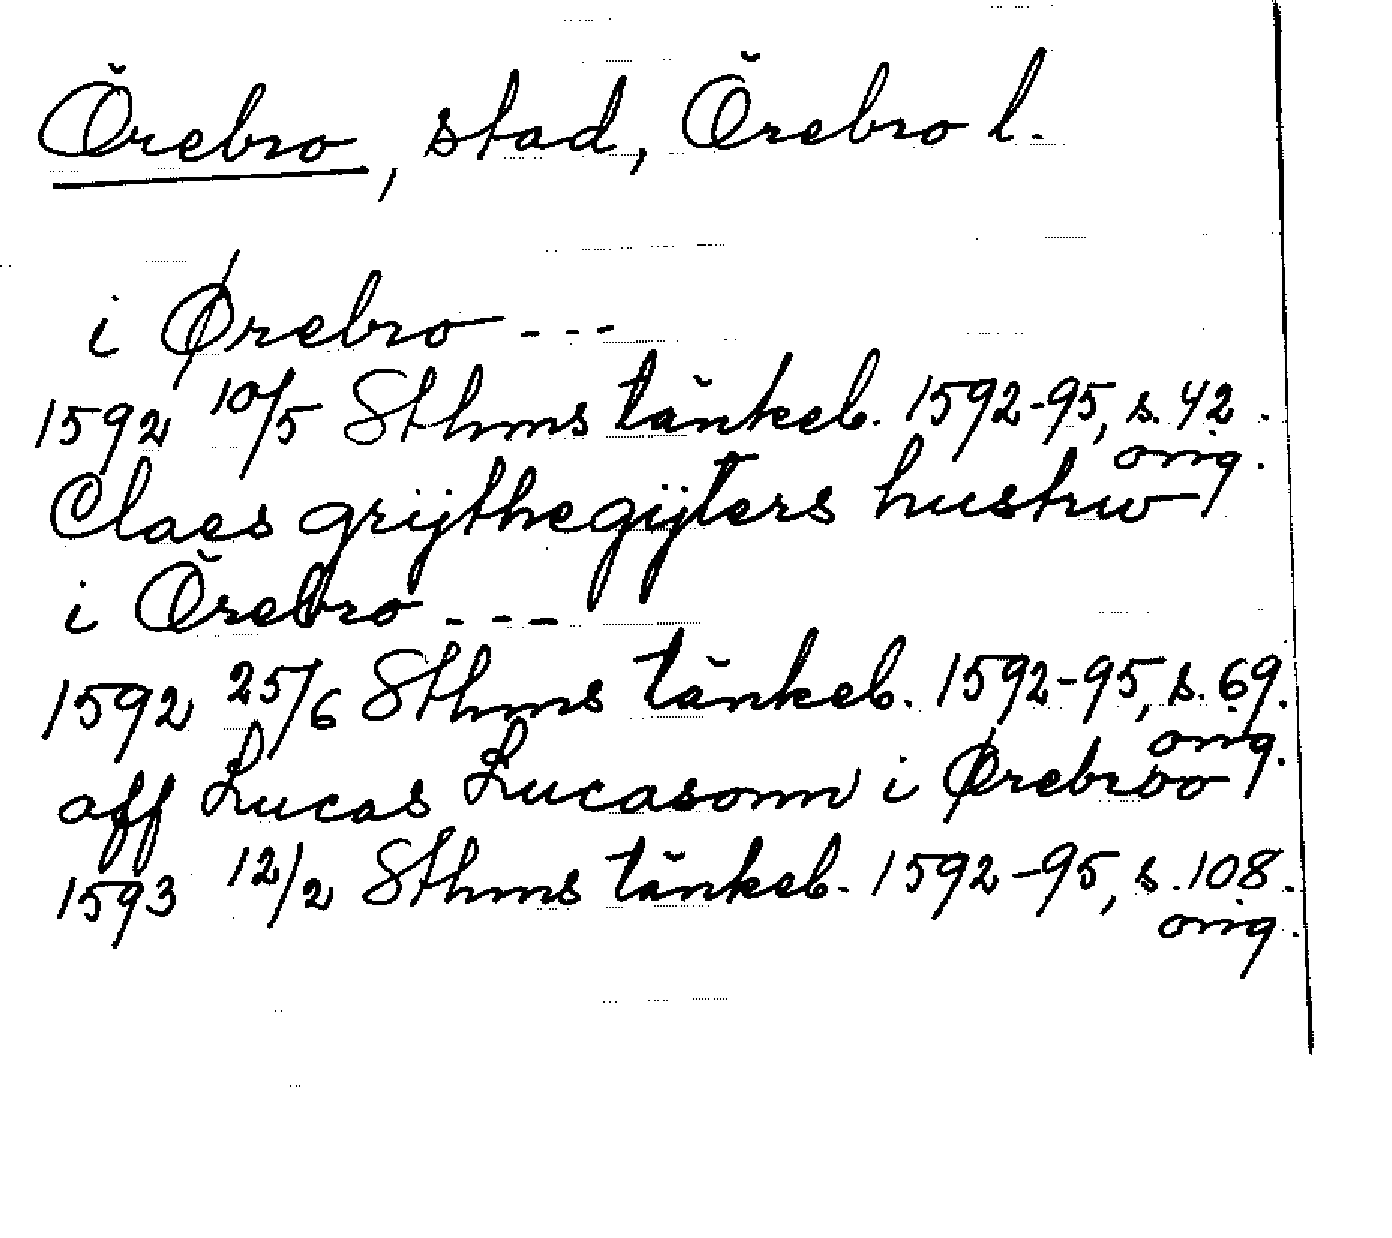 Örebro, stad, Örebro l.
i Ørebro - - -
1592 10/5 Sthms tänkeb. 1592-95, s. 42.
orig.
Claes grijthegijters hustrw
i Örebro - - -
1592 25/6 Sthms tänkeb. 1592-95, s. 69.
orig.
aff Lucas Lucasonn i Ørebroo
1593 12/2 Sthms tänkeb. 1592-95, s. 108.
orig.